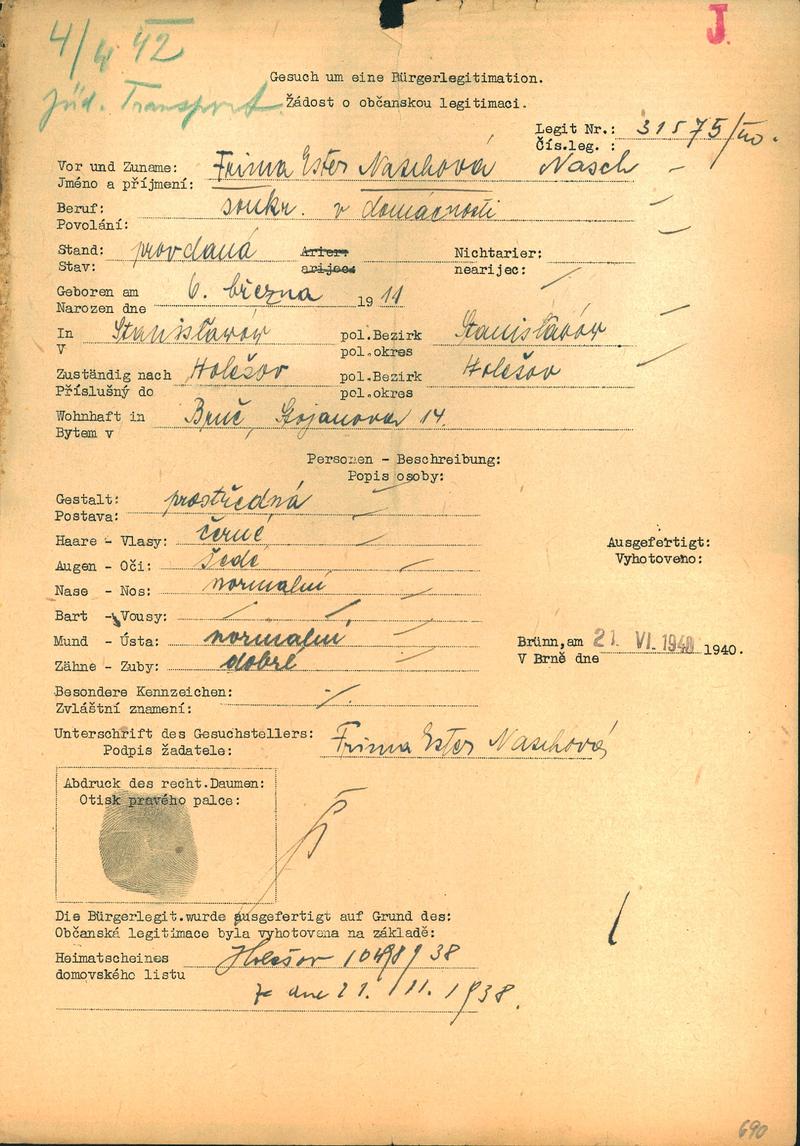 4/4 42
J.
jüd. Transport
Gesuch um eine Bürgerlegitimation.
Žádost o občanskou legitimaci.
Legit Nr.: 31575/40.
Čís.leg. :
Vor und Zuname: Frima Ester Naschová Nasch
Jméno a příjmení:
Beruf: soukr. v domácnosti
Povolání:
Stand: provdaná Arier: Nichtarier:
Stav: arijec: nearijec:
Geboren am 6. března 1911
Narozen dne
In Stanisławów pol.Bezirk Stanisławów
V pol.okres
Zuständig nach Holešov pol.Bezirk Holešov
Příslušný do pol.okres
Wohnhaft in Brně, Stojanova 14.
Bytem v
Personen - Beschreibung:
Popis osoby:
Gestalt: prostředná
Postava:
Haare - Vlasy: černé
Augen - Oči: šedé
Nase - Nos: normalní
Bart - Vousy:
Mund - Ústa: normalní
Zähne - Zuby: dobré
Ausgefertigt:
Vyhotoveno:
Brünn,am 21. VI. 1940 1940.
V Brně dne
Besondere Kennzeichen:
Zvláštní znamení:
Unterschrift des Gesuchstellers: Frima Ester Naschová
Podpis žadatele:
Abdruck des recht.Daumen:
Otisk pravého palce:
Die Bürgerlegit.wurde ausgefertigt auf Grund des:
Občanská legitimace byla vyhotovena na základě:
Heimatscheines Holešov
domovského listu
ze dne 21. 1938.
690